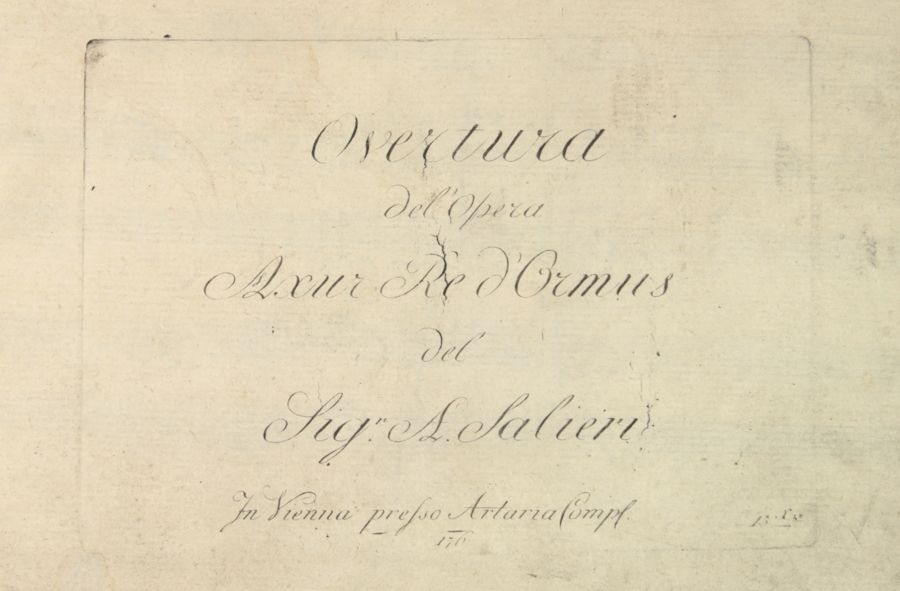 Overtura
del' Opera
Axur Re d'Ormus
del
Sig.r A. Salieri
In Vienna presso Artaria Comp.
176